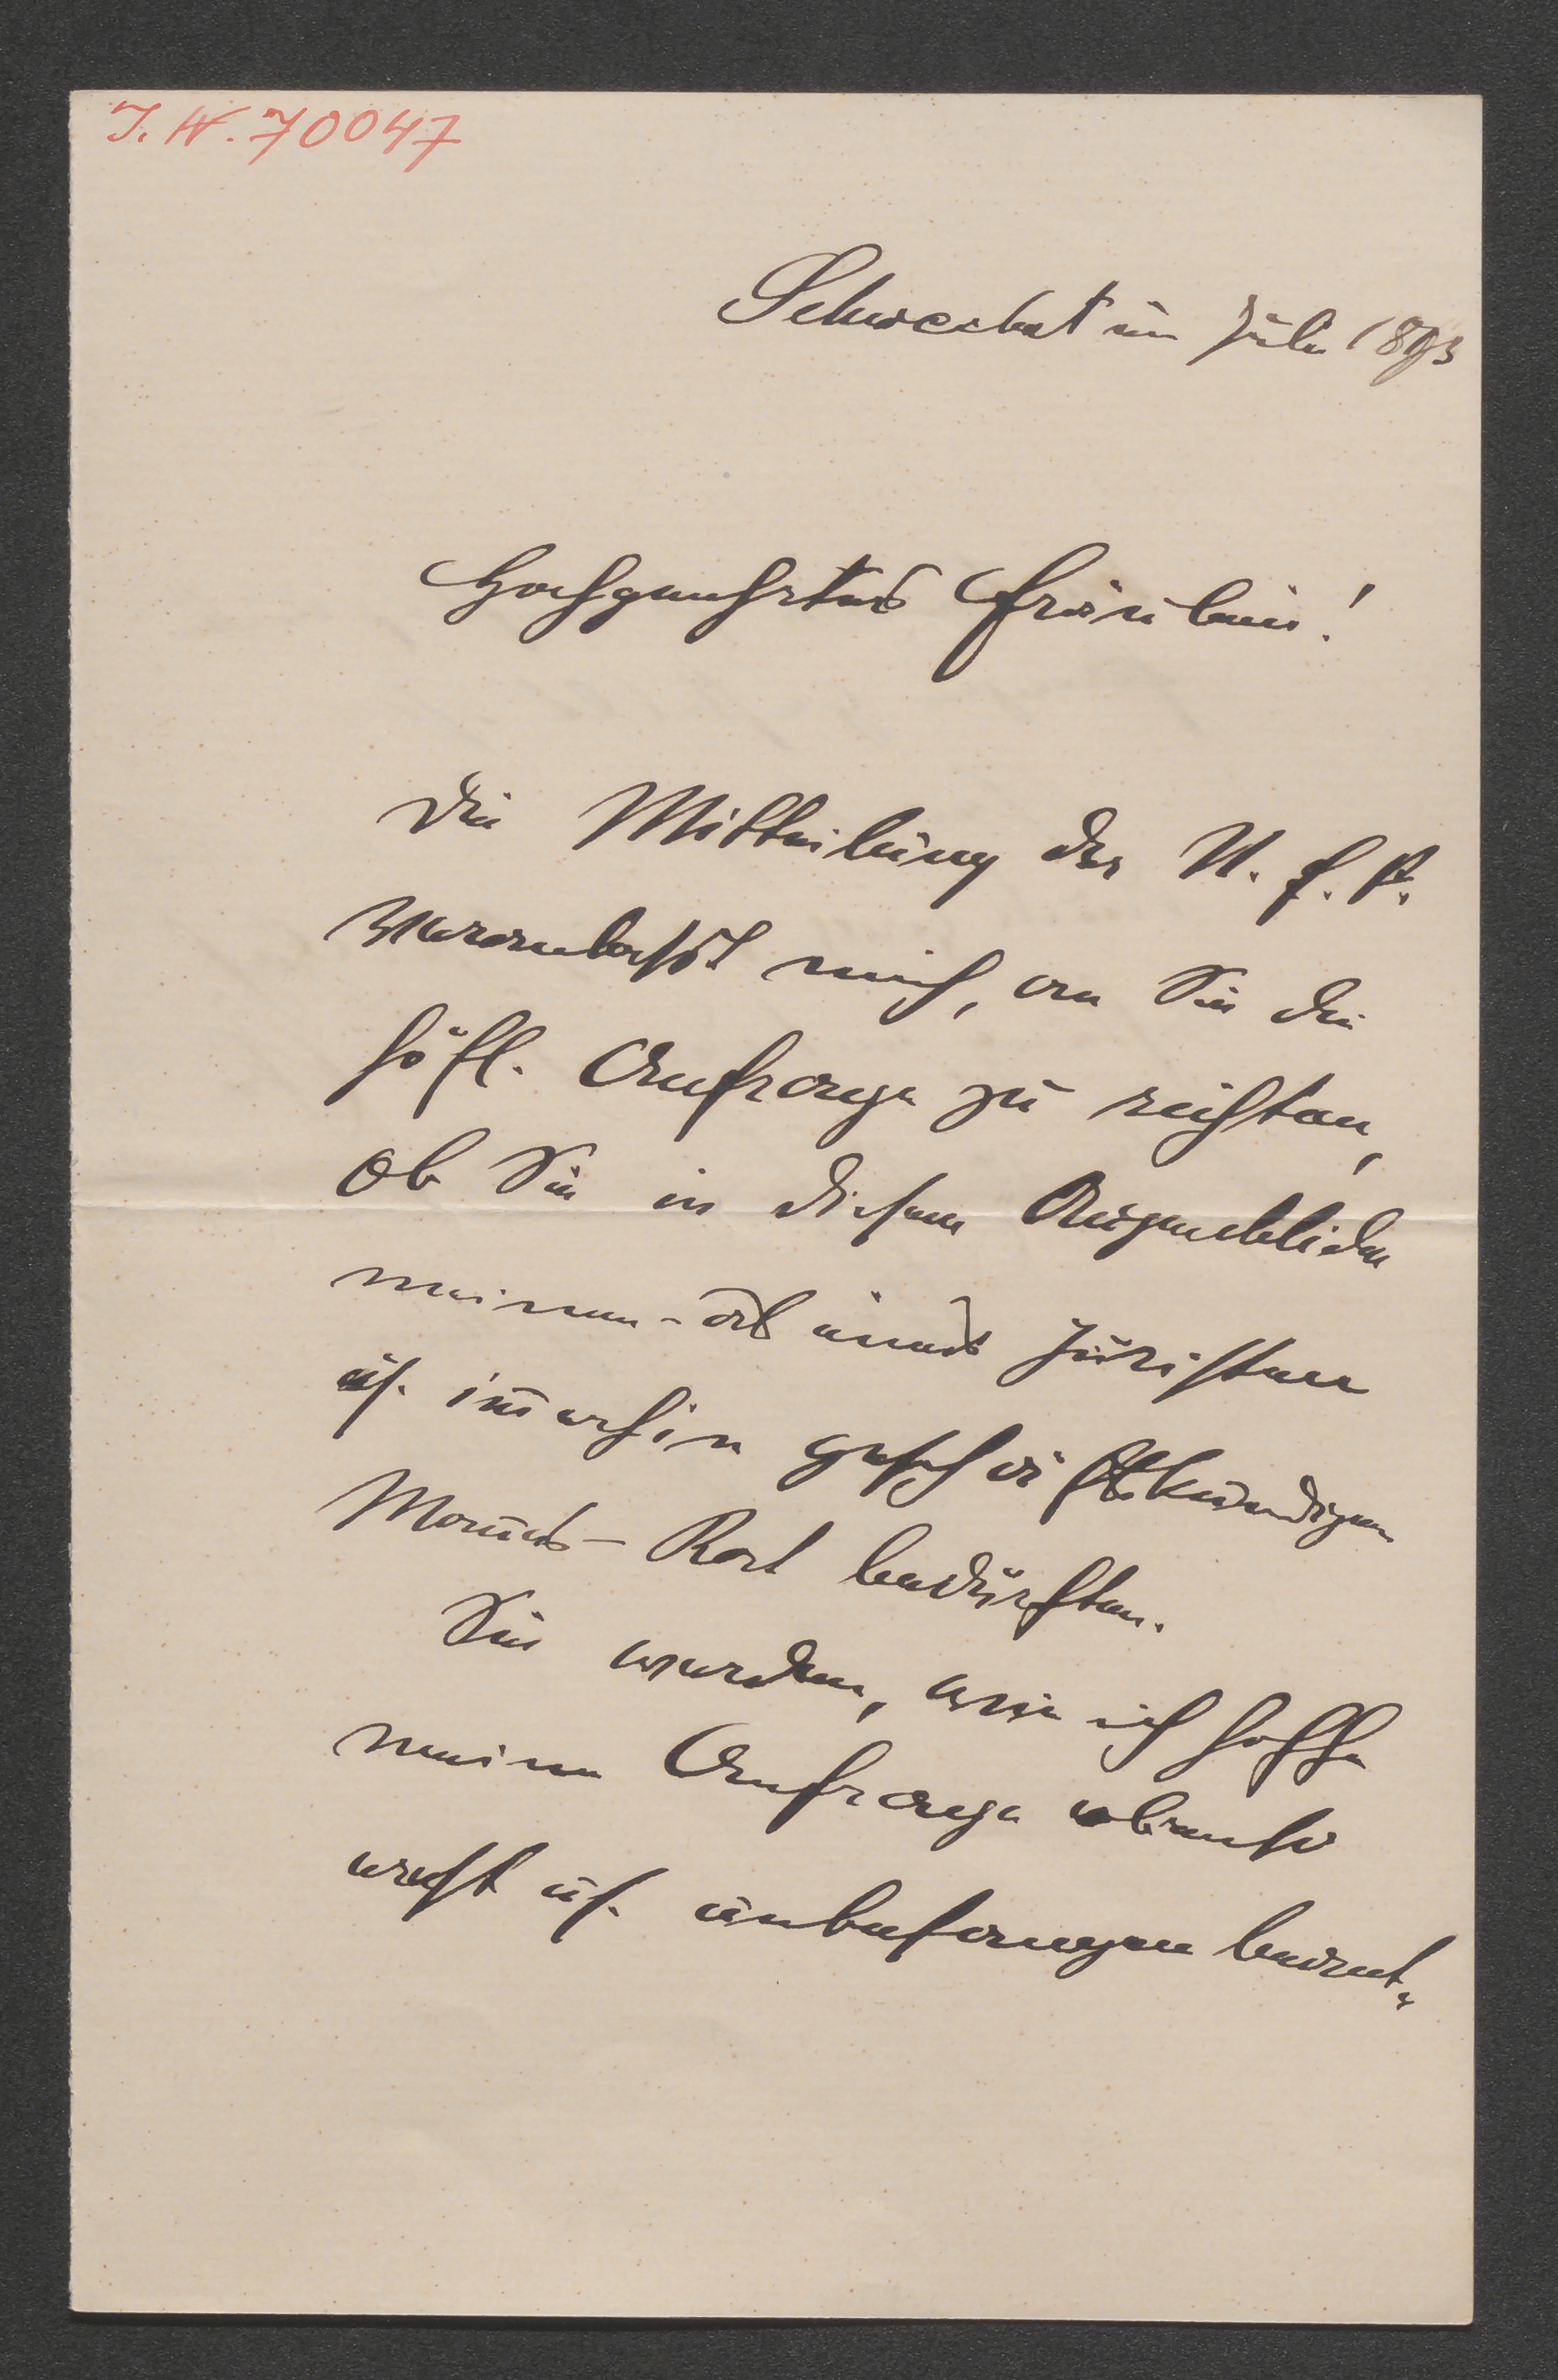 I. N. 70047
Schwechat im Juli 1893
Hochgeehrtes Fräulein!
Die Mittheilung der N. f. P.
veranlaßt mich, an Sie die
höfl. Anfrage zu richten,
ob Sie in diesem Augenblicke
meines – als eines Juristen
u. immerhin geschäftskundigen
Mannes – Rat bedürften.
Sie werden, wie ich hoffe
meine Anfrage ebenso
recht u. unbefangen beant-